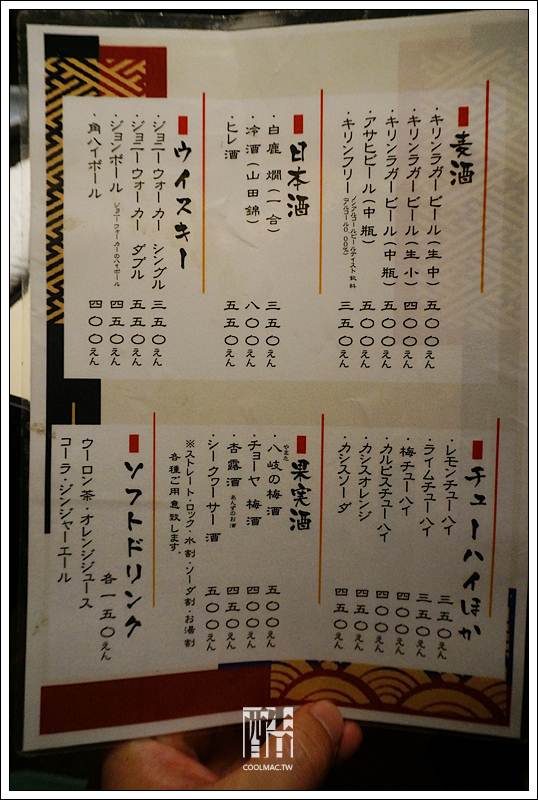 麦酒
・キリンラガービール(生中) 五〇〇えん
・キリンラガービール(生小) 四〇〇えん
・キリンラガービール(中瓶) 五〇〇えん
・アサヒビール(中瓶) 五〇〇えん
・キリンフリー 三五〇えん
ノンアルコールビールテイスト飲料
(アルコール0.00%)
日本酒
・白鹿 燗(一合) 三五〇えん
・冷酒(山田錦) 八〇〇えん
・ヒレ酒 五五〇えん
ウイスキー
・ジョニーウォーカー シングル 三五〇えん
・ジョニーウォーカー ダブル 五五〇えん
・ジョンボール ジョニーウォーカーのハイボール 四五〇えん
・角ハイボール 四〇〇えん
チューハイほか
・レモンチューハイ 三五〇えん
・ライムチューハイ 三五〇えん
・梅チューハイ 四〇〇えん
・カルピスチューハイ 四〇〇えん
・カシスオレンジ 四五〇えん
・カシスソーダ 四五〇えん
果実酒
・八岐の梅酒 五〇〇えん
やまた
・チョーヤ 梅酒 四〇〇えん
・杏露酒 あんずのお酒 四五〇えん
・シークヮーサー酒 五〇〇えん
※ストレート・ロック・水割・ソーダ割・お湯割
各種ご用意致します。
ソフトドリンク
各一五〇えん
ウーロン茶・オレンジジュース
コーラ・ジンジャーエール
酷
COOLMAC.TW